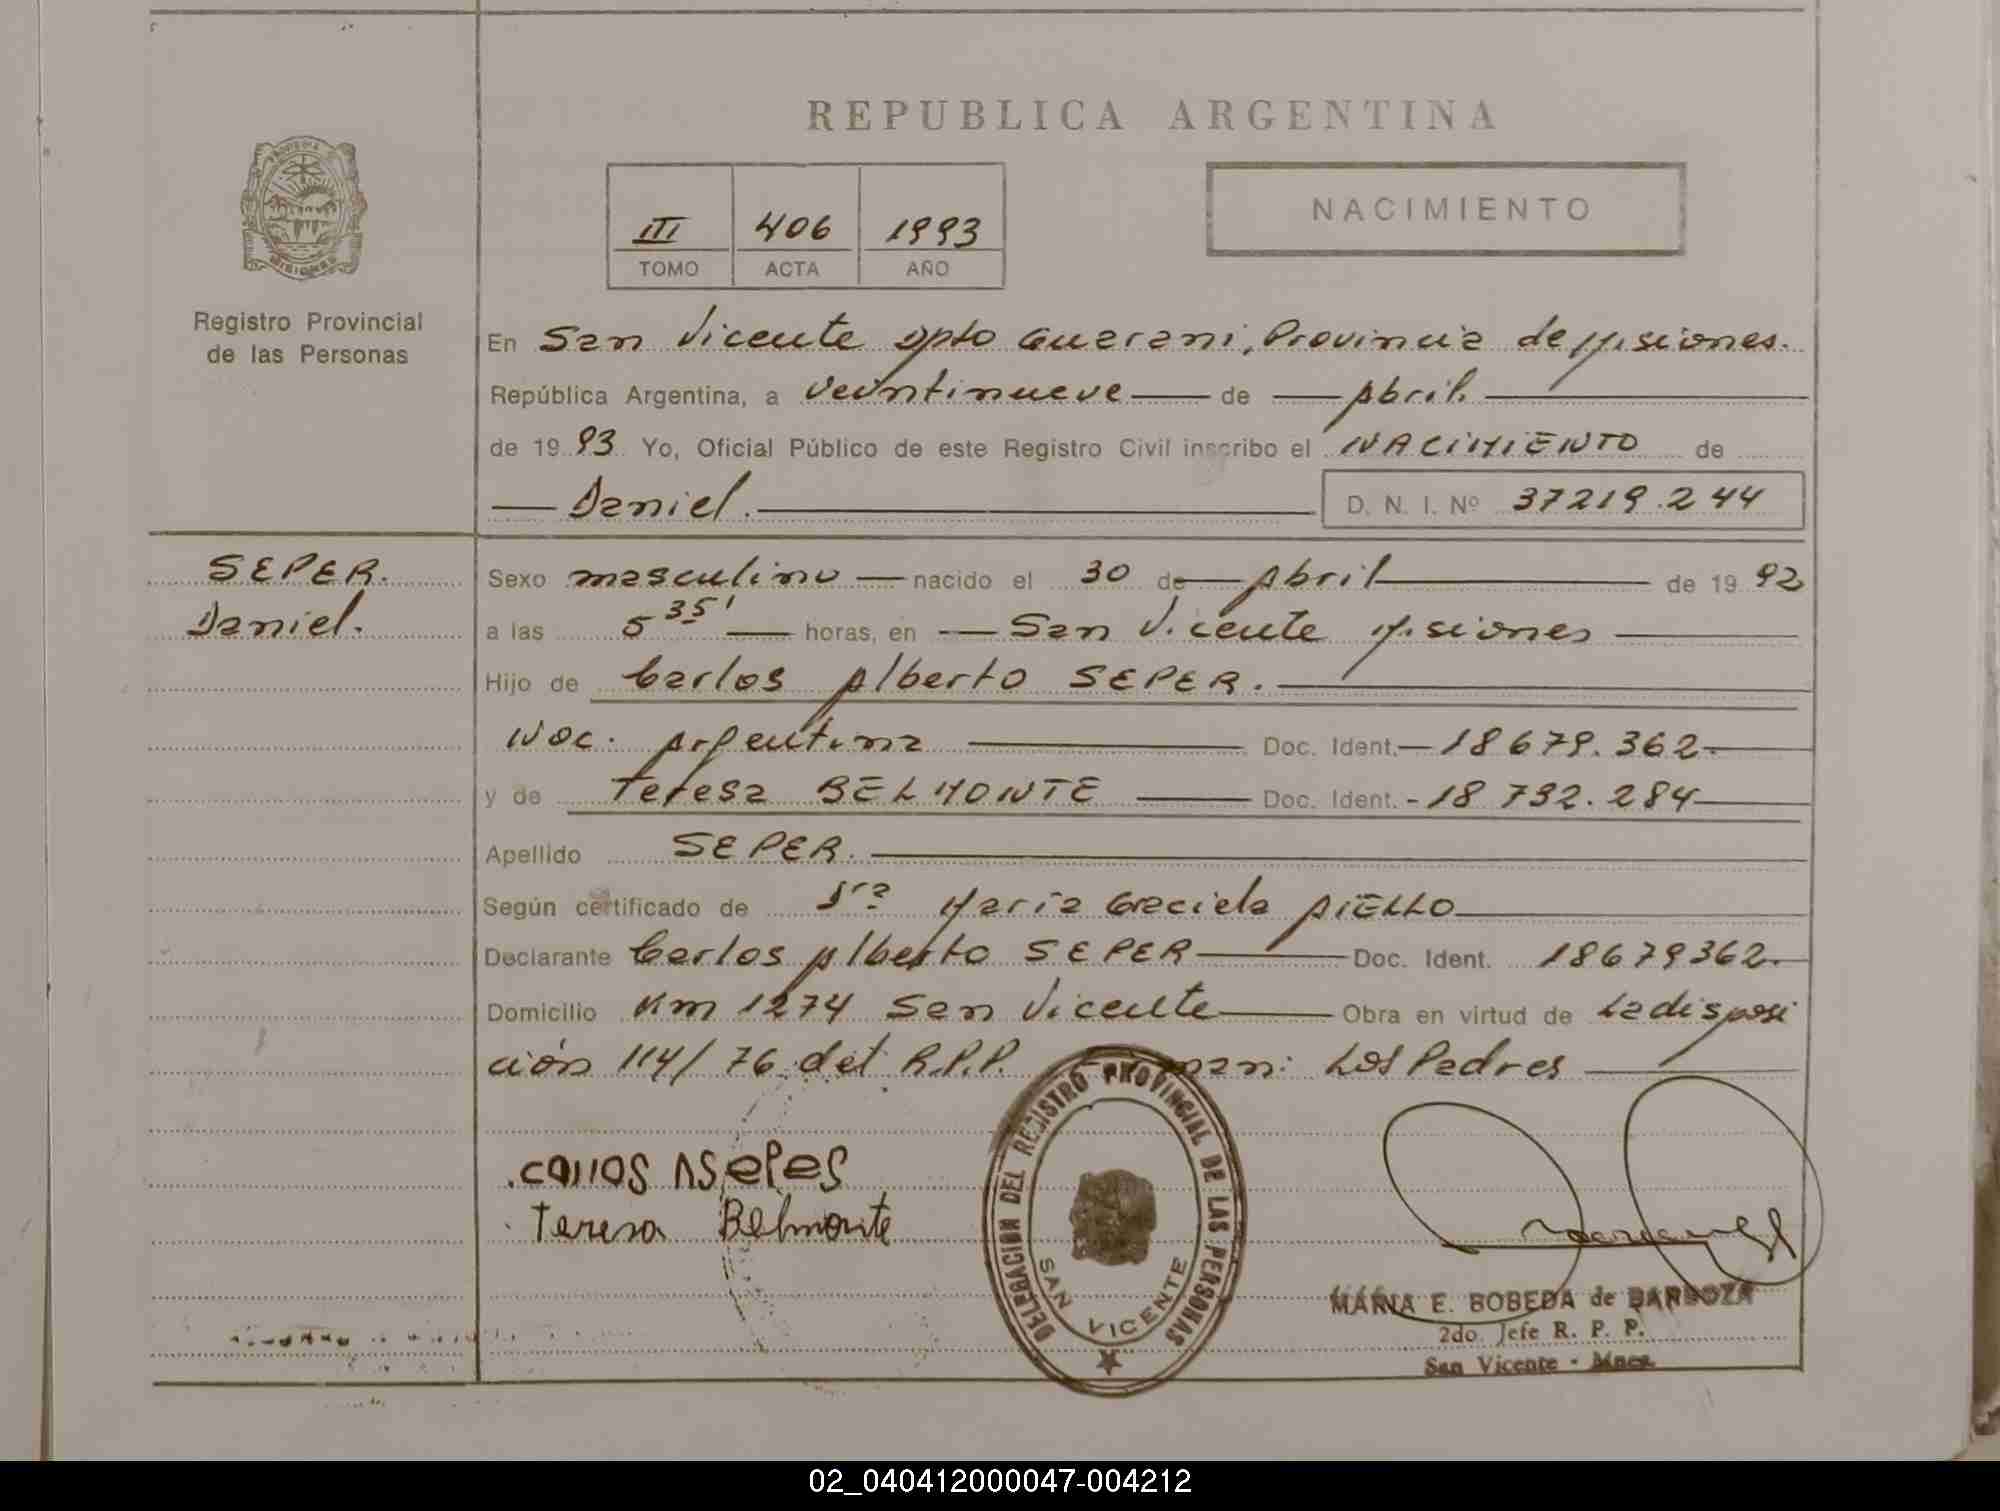 REPUBLICA ARGENTINA
PROVINCIA
MISIONES
Registro Provincial
de las Personas
III 406 1993
TOMO ACTA AÑO
NACIMIENTO
En San Vicente Dpto Guarani, Provincia de Misiones.
República Argentina, a veintinueve de Abril
de 19 93 Yo, Oficial Público de este Registro Civil inscribo el NACIMIENTO de
Daniel. D. N. I. Nº 37219.244
SEPER.
Daniel.
Sexo masculino nacido el 30 de Abril de 19 92
a las 5 35' horas, en San Vicente Misiones
Hijo de Carlos Alberto SEPER.
Nac. Argentina Doc. Ident. 18679.362
y de Teresa BELMONTE Doc. Ident. 18 732.284
Apellido SEPER.
Según certificado de Dra María Graciela AIELLO
Declarante Carlos Alberto SEPER Doc. Ident. 18679362.
Domicilio Km 1274 San Vicente Obra en virtud de La disposi
ción 114/76 del R.P.P. Los Padres
Carlos A Seper
Teresa Belmonte
DELEGACION DEL REGISTRO PROVINCIAL DE LAS PERSONAS
SAN VICENTE
MARIA E. BOBEDA de BARBOZA
2do. Jefe R. P. P.
San Vicente - Mnes.
02_040412000047-004212